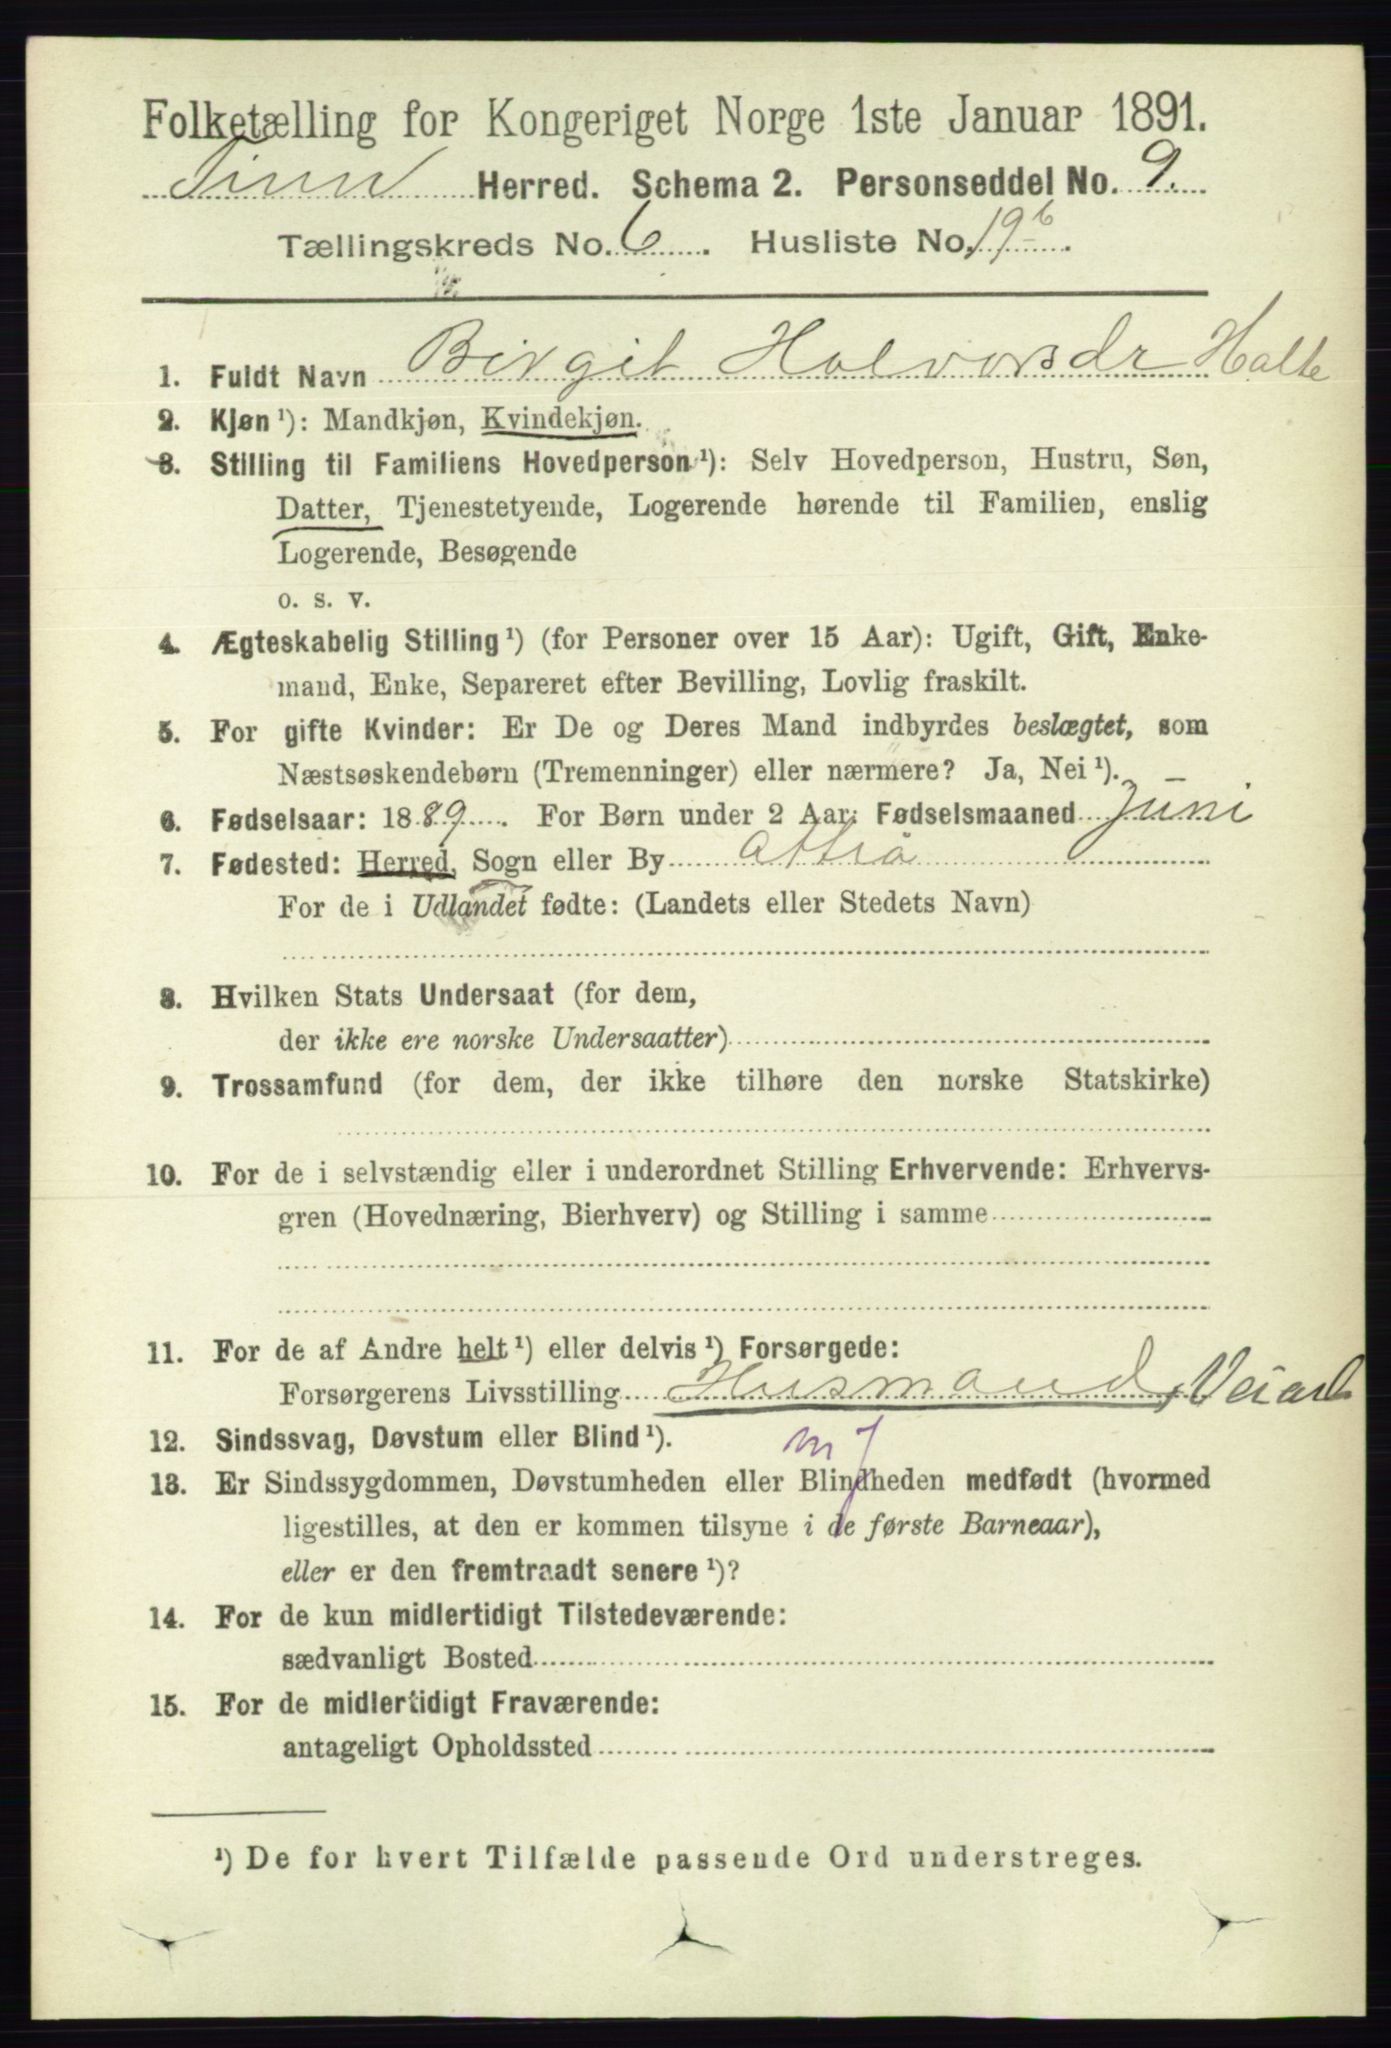 Folketælling for Kongeriget Norge 1ste Januar 1891.
Tinn Herred. Schema 2. Personseddel No. 9.
Tællingskreds No. 6. Husliste No. 19 b.
1. Fuldt Navn Birgit Halvorsdr Halte
2. Kjøn¹): Mandkjøn, Kvindekjøn.
3. Stilling til Familiens Hovedperson¹): Selv Hovedperson, Hustru, Søn,
Datter, Tjenestetyende, Logerende hørende til Familien, enslig
Logerende, Besøgende
o. s. v.
4. Ægteskabelig Stilling¹) (for Personer over 15 Aar): Ugift, Gift, Enke-
mand, Enke, Separeret efter Bevilling, Lovlig fraskilt.
5. For gifte Kvinder: Er De og Deres Mand indbyrdes beslægtet, som
Næstsøskendebørn (Tremenninger) eller nærmere? Ja, Nei¹).
6. Fødselsaar: 1889. For Børn under 2 Aar: Fødselsmaaned Juni
7. Fødested: Herred, Sogn eller By Attraa
For de i Udlandet fødte: (Landets eller Stedets Navn)
8. Hvilken Stats Undersaat (for dem,
der ikke ere norske Undersaatter)
9. Trossamfund (for dem, der ikke tilhøre den norske Statskirke)
10. For de i selvstændig eller i underordnet Stilling Erhvervende: Erhvervs-
gren (Hovednæring, Bierhverv) og Stilling i samme
11. For de af Andre helt¹) eller delvis¹) Forsørgede:
Forsørgerens Livsstilling Husmand, Veiarb
12. Sindssvag, Døvstum eller Blind¹).
13. Er Sindssygdommen, Døvstumheden eller Blindheden medfødt (hvormed
ligestilles, at den er kommen tilsyne i de første Barneaar),
eller er den fremtraadt senere¹)?
14. For de kun midlertidigt Tilstedeværende:
sædvanligt Bosted
15. For de midlertidigt Fraværende:
antageligt Opholdssted
¹) De for hvert Tilfælde passende Ord understreges.